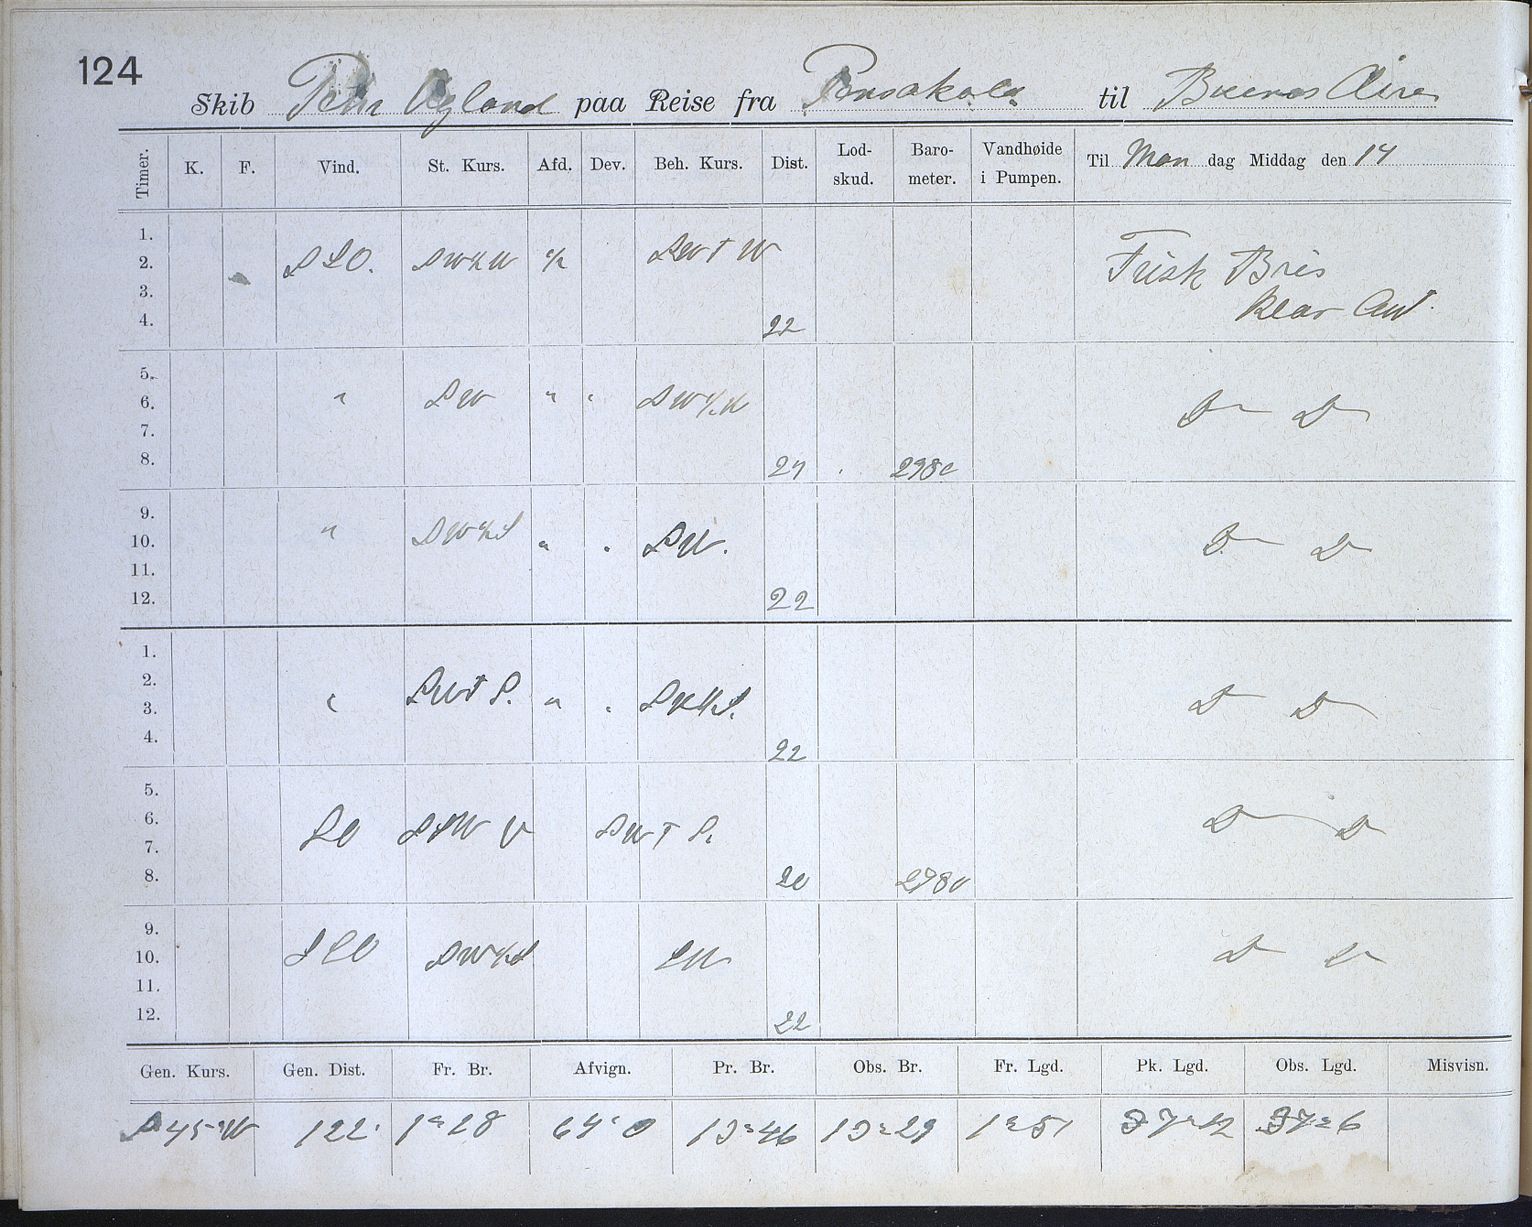 124
Skib Ugland paa Reise fra Pensakola til Buenos Aires
Timer. K. F. Vind. St. Kurs. Afd. Dev. Beh. Kurs. Dist. Lod-skud. Baro-meter. Vandhøide i Pumpen. Til Man dag Middag den 14
1.
2. SSO. SW½W ½ SWTW Frisk Bris
3. klar
4. 22
5.
6. " SW " " SW½W D D
7.
8. 24 2980
9.
10. " SW½S " " SW. D D
11.
12. 22
1.
2. " SWTS. " " SW½S. D D
3.
4. 22
5.
6. SO SSW SWTS. D D
7.
8. 20 2980
9.
10. SSO SW½S SW D D
11.
12. 22
Gen. Kurs. Gen. Dist. Fr. Br. Afvign. Pr. Br. Obs. Br. Fr. Lgd. Pk. Lgd. Obs. Lgd. Misvisn.
S 45° W 122 1 28 13 46 13 29 1 51 37 12 37 6